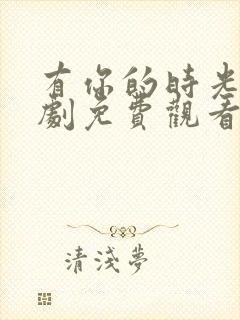 有你的時光
劇免費觀看
清淺夢